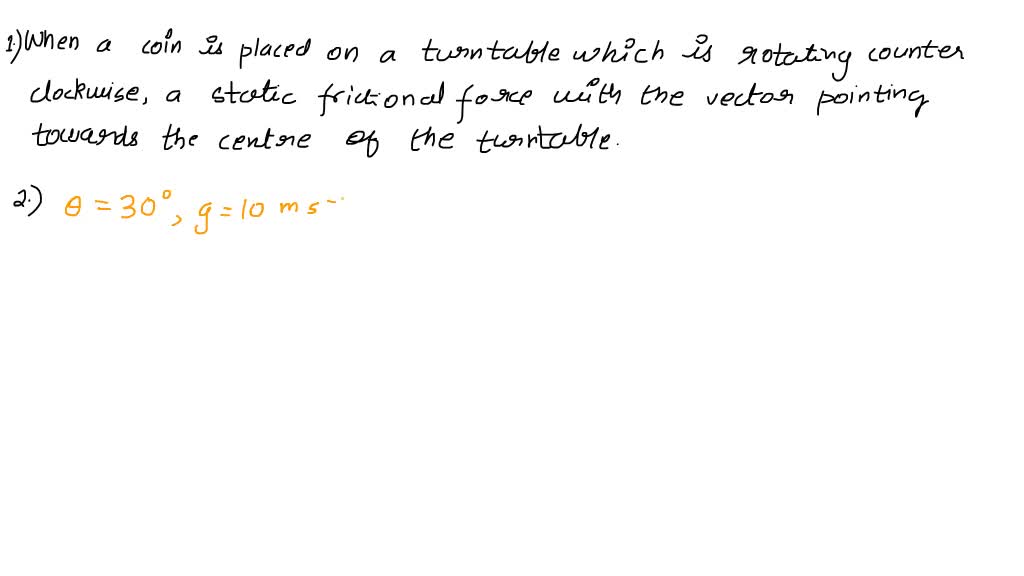 1.) When a coin is placed on a turntable which is rotating counter
clockwise, a static frictional force with the vector pointing
towards the centre of the turntable.
2.) θ = 30°, g = 10 m s⁻